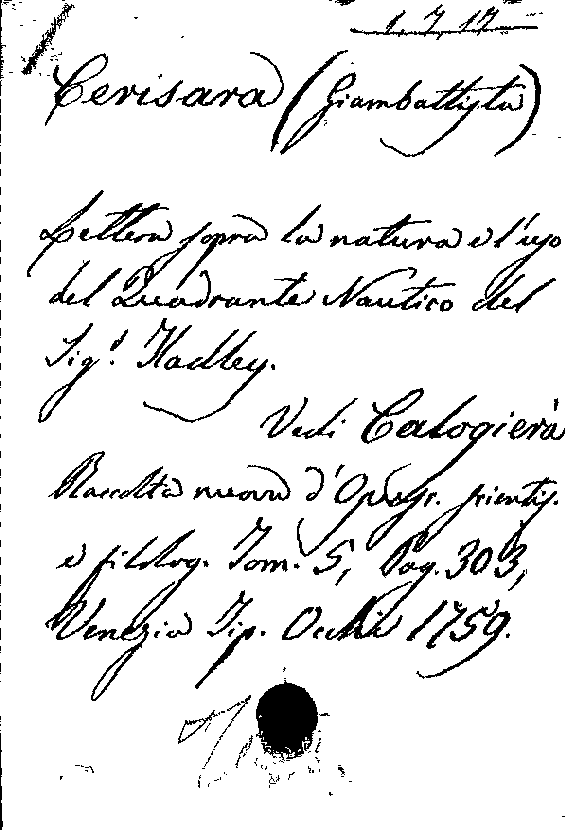 1. 7. 17
Cerisara (Giambattista)
Lettera sopra la natura e l'uso
del Quadrante Nautico del
Sig.r Hadley.
Vedi Calogierà
Raccolta nuova d'Opusc. scientif.
e filolog. Tom. 5, Pag. 303,
Venezia Tip. Occhi 1759.